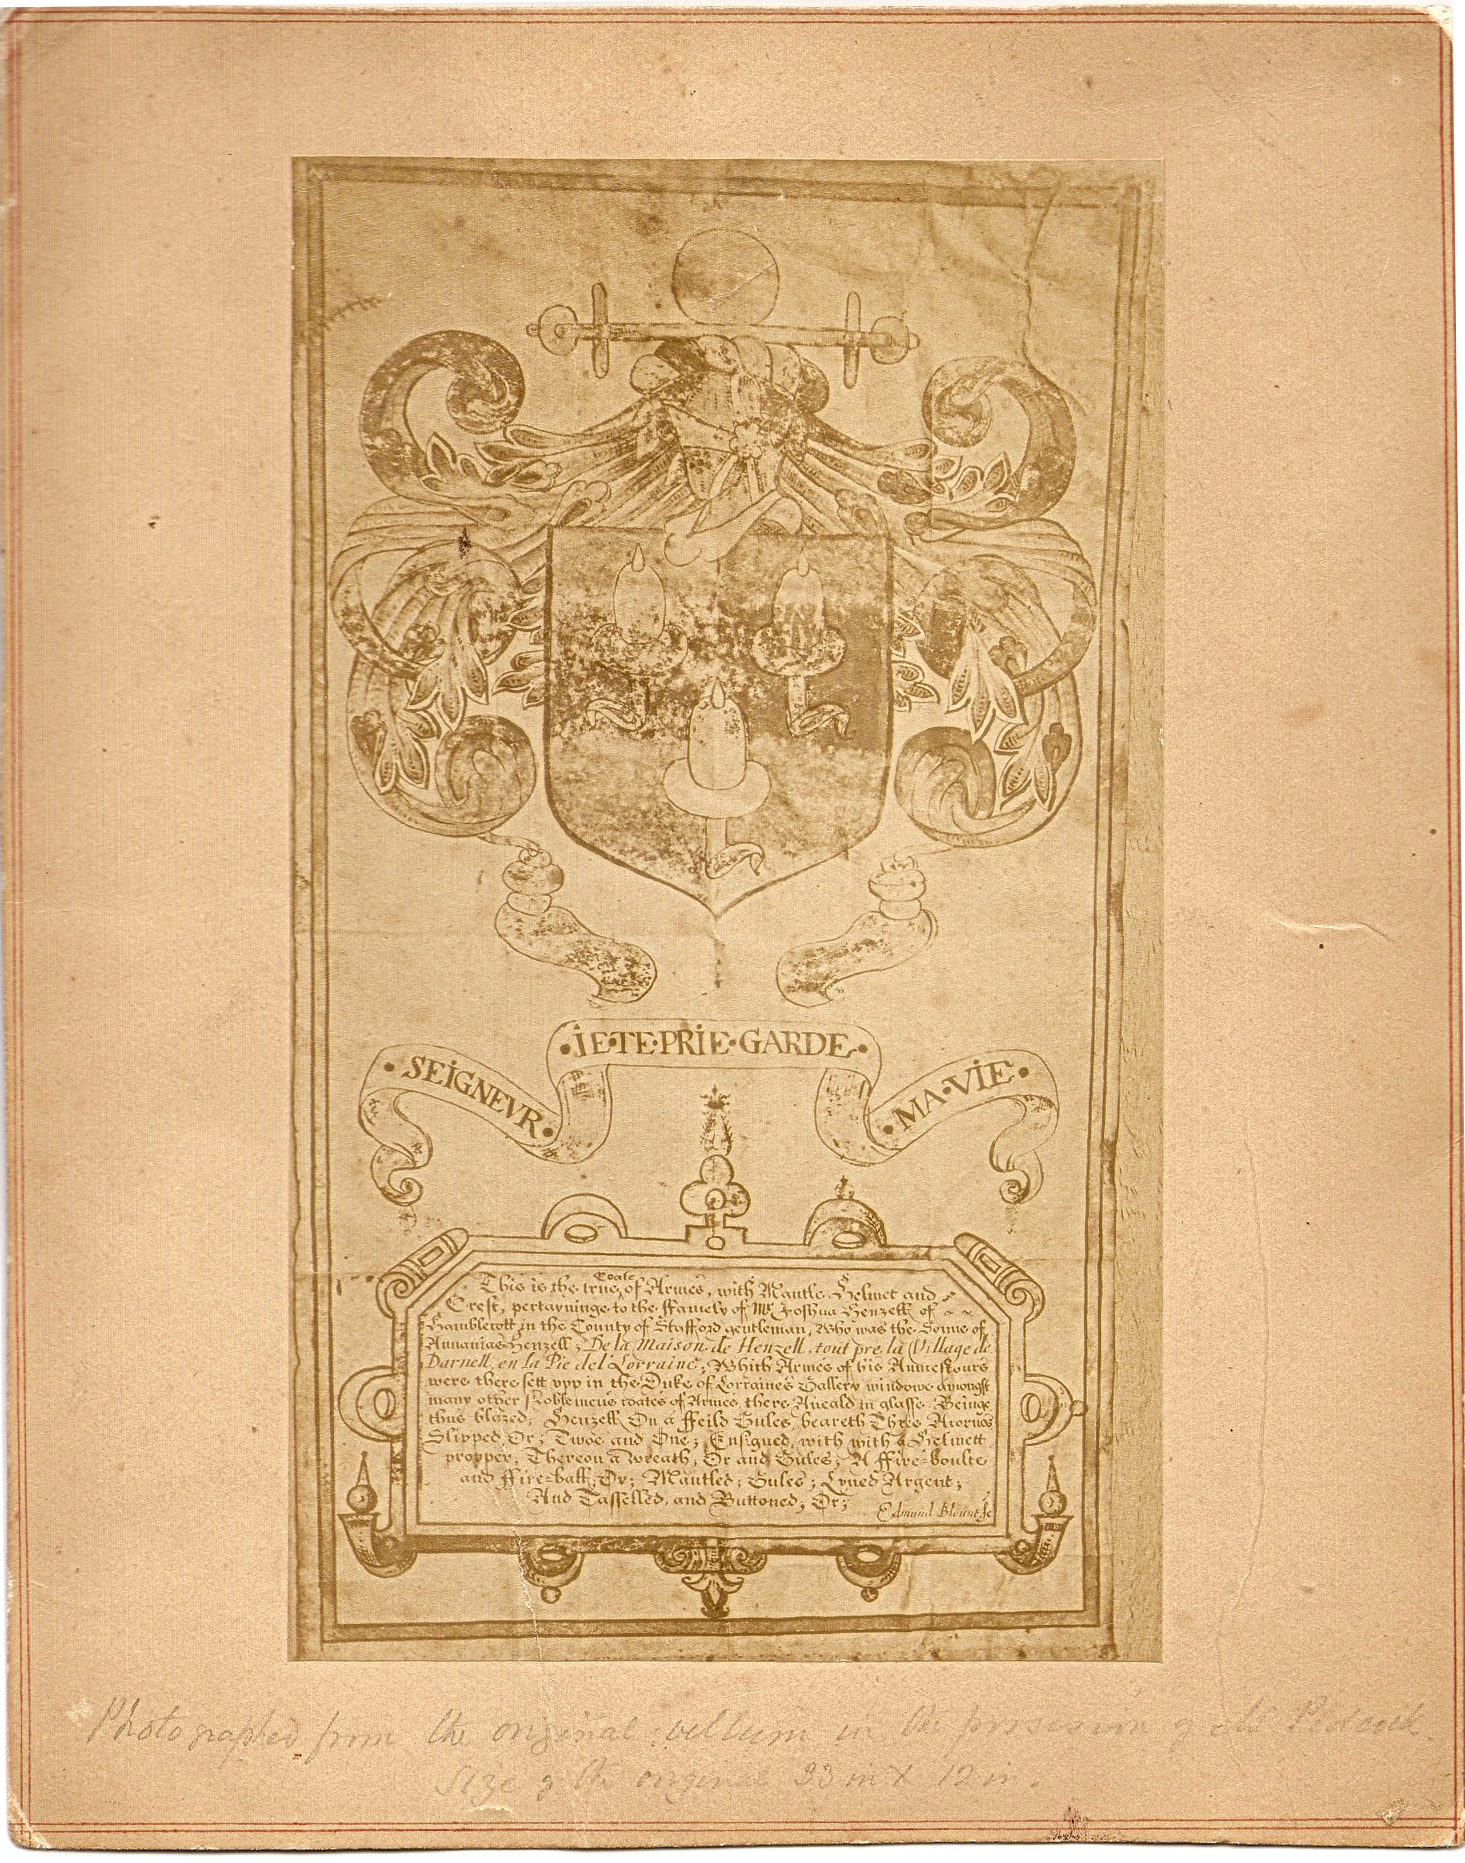 SEIGNEVR · IE·TE·PRIE·GARDE · MA·VIE
This is the true Coate of Armes, with Mantle, Helmet and
Crest, pertayninge to the ffamely of Mr. Joshua Henzell of
Hamblecott in the County of Stafford gentleman, Who was the Sonne of
Annanias Henzell, De la Maison de Henzell, tout pre la Village de
Darnell, en la Pie del' Lorraine; Which Armes of his Auncestours
were there sett vpp in the Duke of Lorraines Gallery windowe amongst
many other Noblemens coates of Armes, there Aneald in glasse. Beinge
thus blazed; Henzell, On a ffeild Gules beareth Three Acornes
Slipped, Or; Twoe and One; Ensigned, with with a Helmett
propper, Thereon a wreath, Or and Gules; A ffire=boulte
and ffire=ball, Or; Mantled; Gules; Lyned Argent;
And Tasselled, and Buttoned, Or;
Edmund Blount
Photographed from the original vellum in the possession of Peacock
Size of the original 23 in X 12 in.